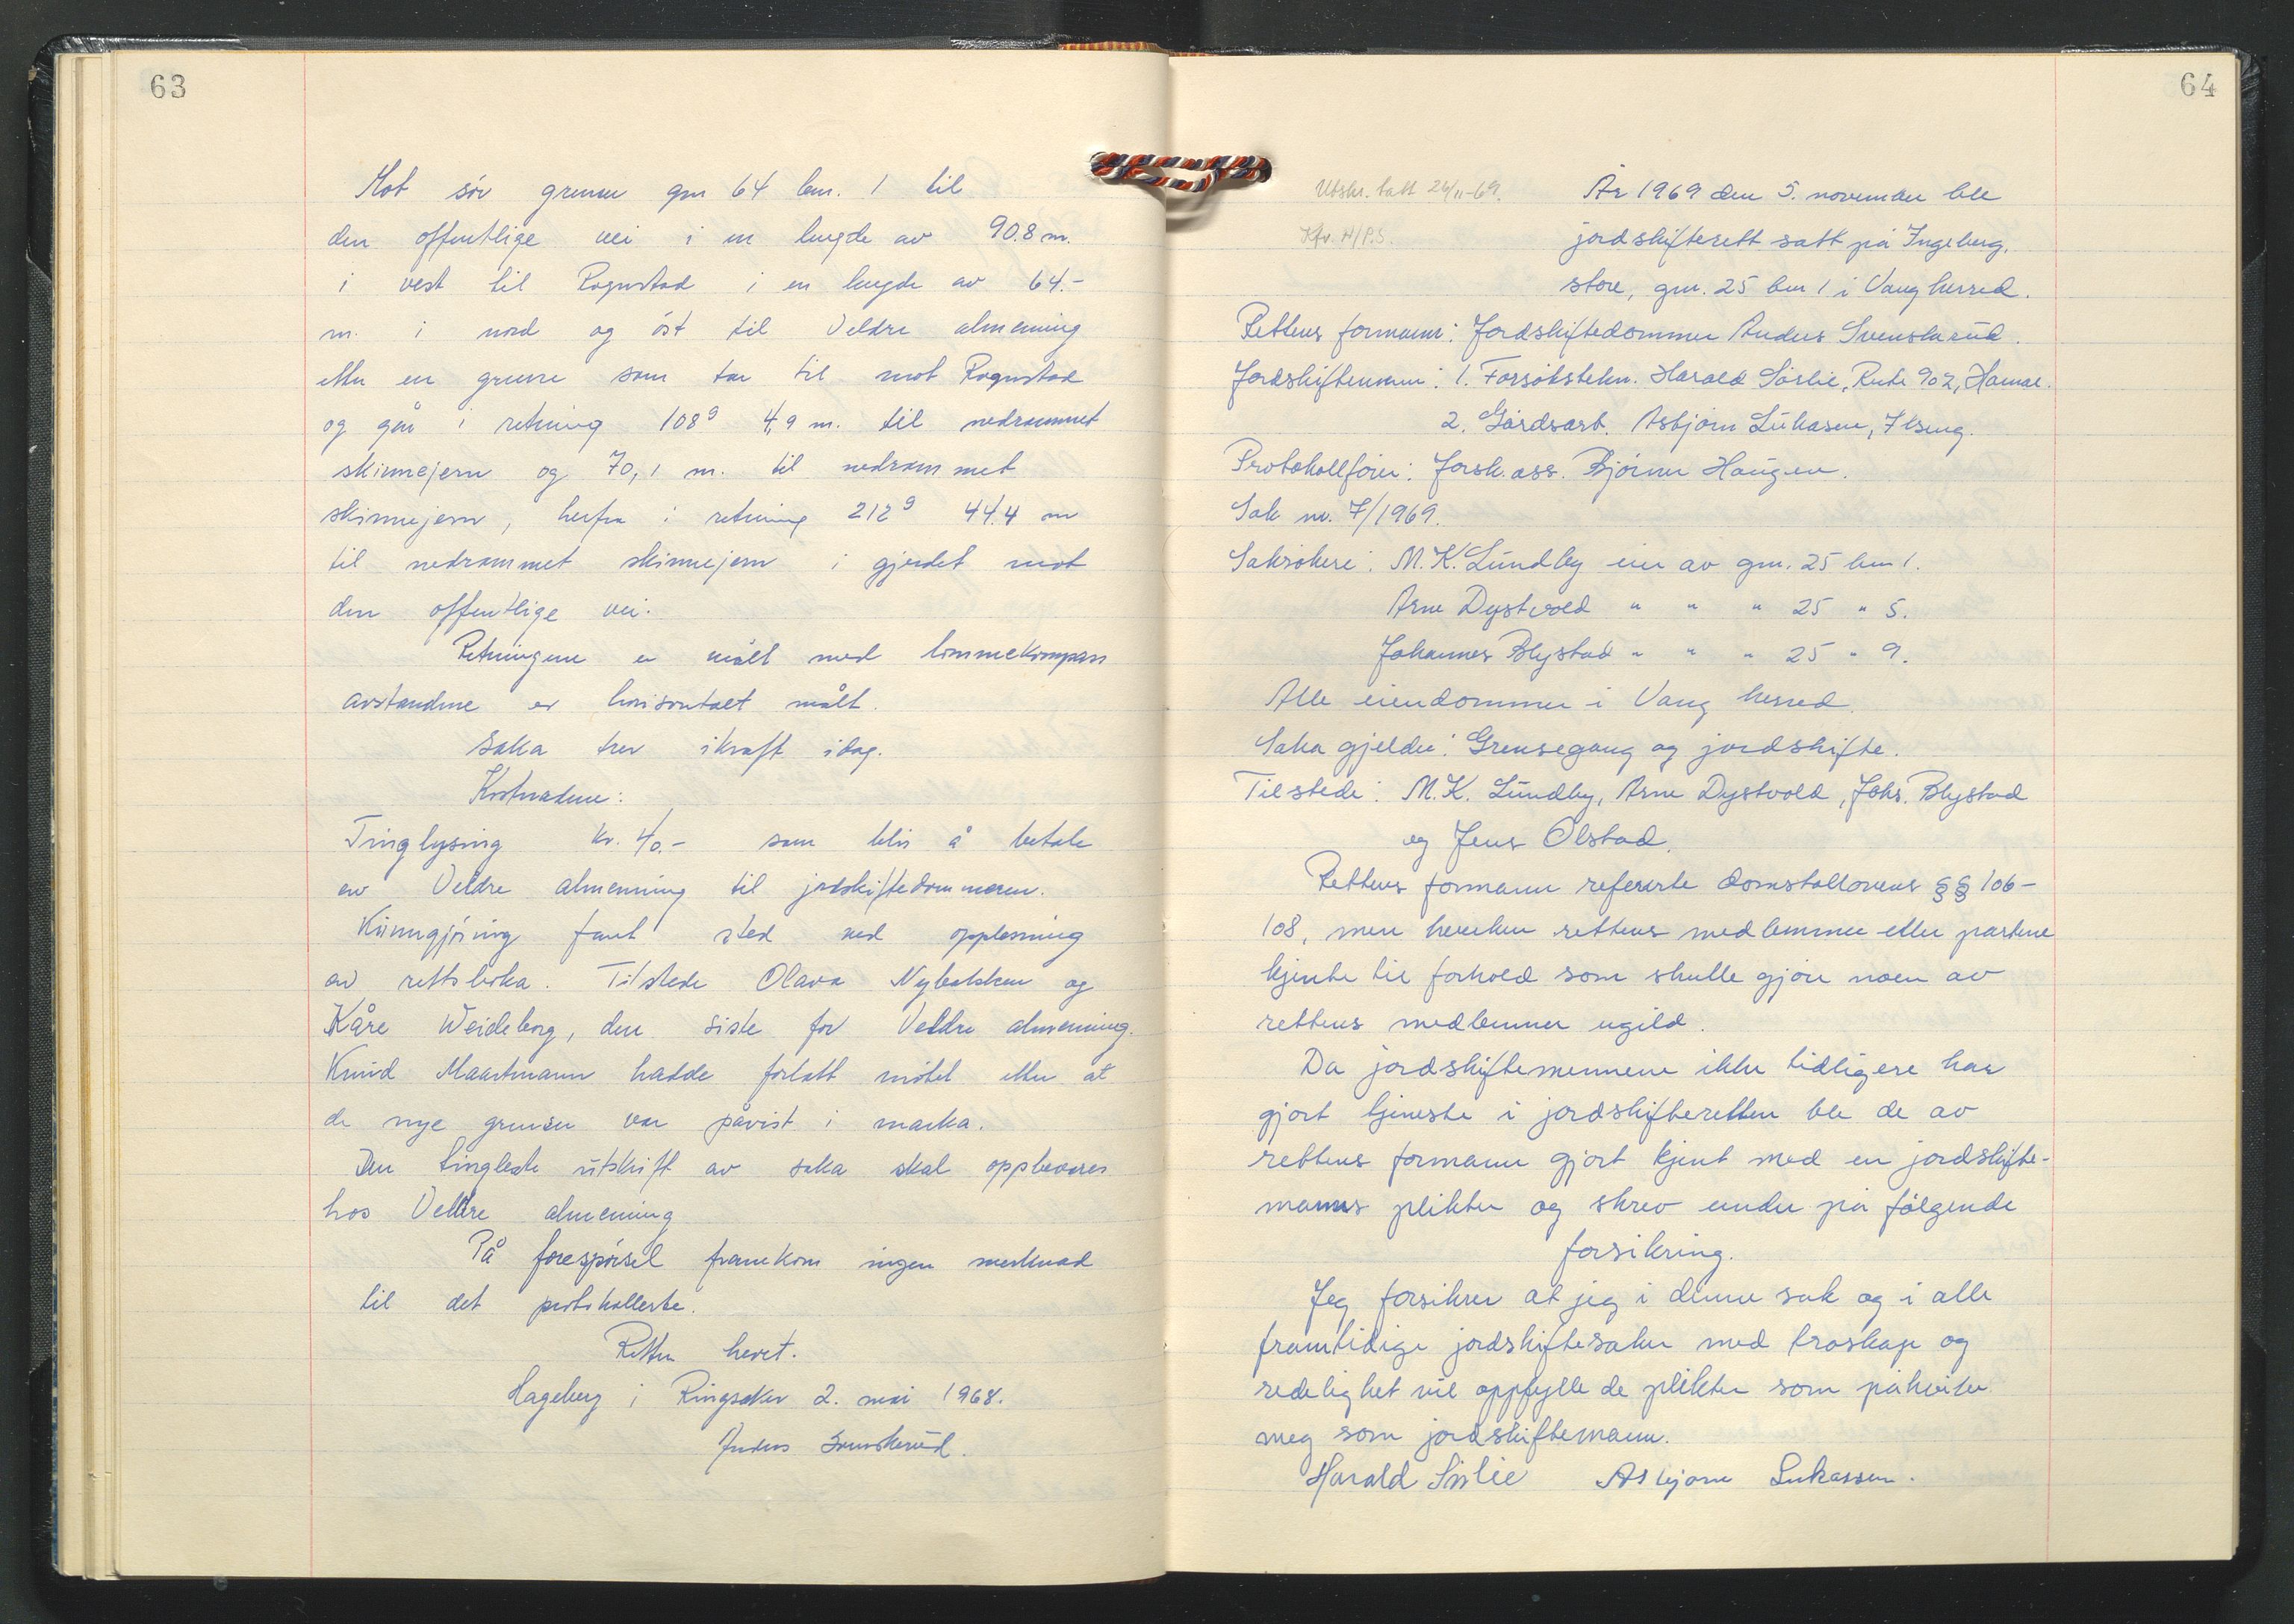 63
Mot sør grense gnr 64 bnr. 1 til
den offentlige vei i en lengde av 90.8 m.
i vest til Rognstad i en lengde av 64.-
m. i nord og øst til Veldre almenning
etter en grense som tar til mot Rognstad
og går i retning 108g 4,9 m. til nedrammet
skinnejern og 70,1 m. til nedrammet
skinnejern, herfra i retning 212g 44.4 m
til nedrammet skinnejern i gjerdet mot
den offentlige vei.
Retningene er målt med lommekompass
avstandene er horisontalt målt.
Saka trer ikraft idag.
Kostnadene:
Tinglysing kr. 40.- som blir å betale
av Veldre almenning til jordskiftedommeren.
Kunngjøring fant sted ved opplesning
av rettsboka. Tilstede Olava Nybakken og
Kåre Weideborg, den siste for Veldre almenning.
Knud Maartmann hadde forlatt møtet etter at
de nye grenser var påvist i marka.
Den tingleste utskrift av saka skal oppbevares
hos Veldre almenning
På forespørsel framkom ingen merknad
til det protokollerte.
Retten hevet.
Hageberg i Ringsaker 2. mai 1968.
Anders Svenskerud.
64
Utskr. tatt 24/11-69.
År 1969 den 5. november ble
jordskifterett satt på Ingeberg,
store, gnr. 25 bnr 1 i Vang herred.
Rettens formann: Jordskiftedommer Anders Svenskerud.
Jordskiftemenn: 1. Forsøkstekn. Harald Sørlie, Rute 902, Hamar.
2. Gårdsarb. Asbjørn Lukasen, Ilseng.
Protokollfører: Jorsk.ass. Bjørner Haugen.
Sak nr. 7/1969.
Saksøkere: M.K. Lundby eier av gnr. 25 bnr 1.
Arne Dystvold " " " 25 " 5.
Johannes Blystad " " " 25 " 9.
Alle eiendommer i Vang herred.
Saka gjelder: Grensegang og jordskifte.
Tilstede: M.K. Lundby, Arne Dystvold, Johs. Blystad
og Jens Olstad.
Rettens formann refererte domstollovens §§ 106-
108, men hverken rettens medlemmer eller partene
kjente til forhold som skulle gjøre noen av
rettens medlemmer ugild.
Da jordskiftemennene ikke tidligere har
gjort tjeneste i jordskifteretten ble de av
rettens formann gjort kjent med en jordskifte-
manns plikter og skrev under på følgende
forsikring.
Jeg forsikrer at jeg i denne sak og i alle
framtidige jordskiftesaker med troskap og
redelighet vil oppfylle de plikter som påhviler
meg som jordskiftemann.
Harald Sørlie Asbjørn Lukassen.